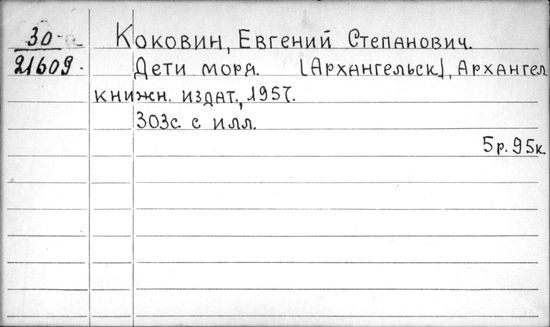 30
21609.
Коковин, Евгений Степанович.
Дети моря. [Архангельск], Архангел
книжн. издат., 1957.
303с. с илл.
5р.95к.